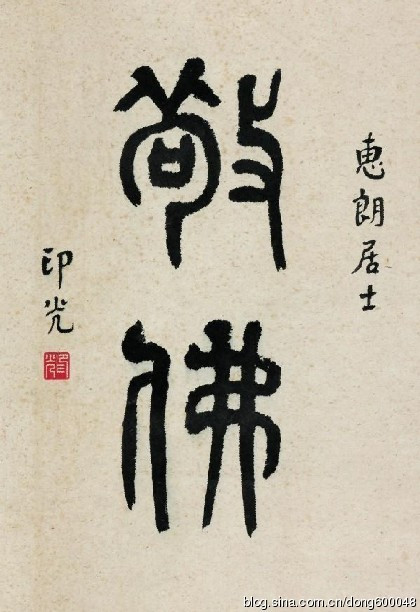 惠朗居士
敬佛
印光
blog.sina.com.cn/dong600048